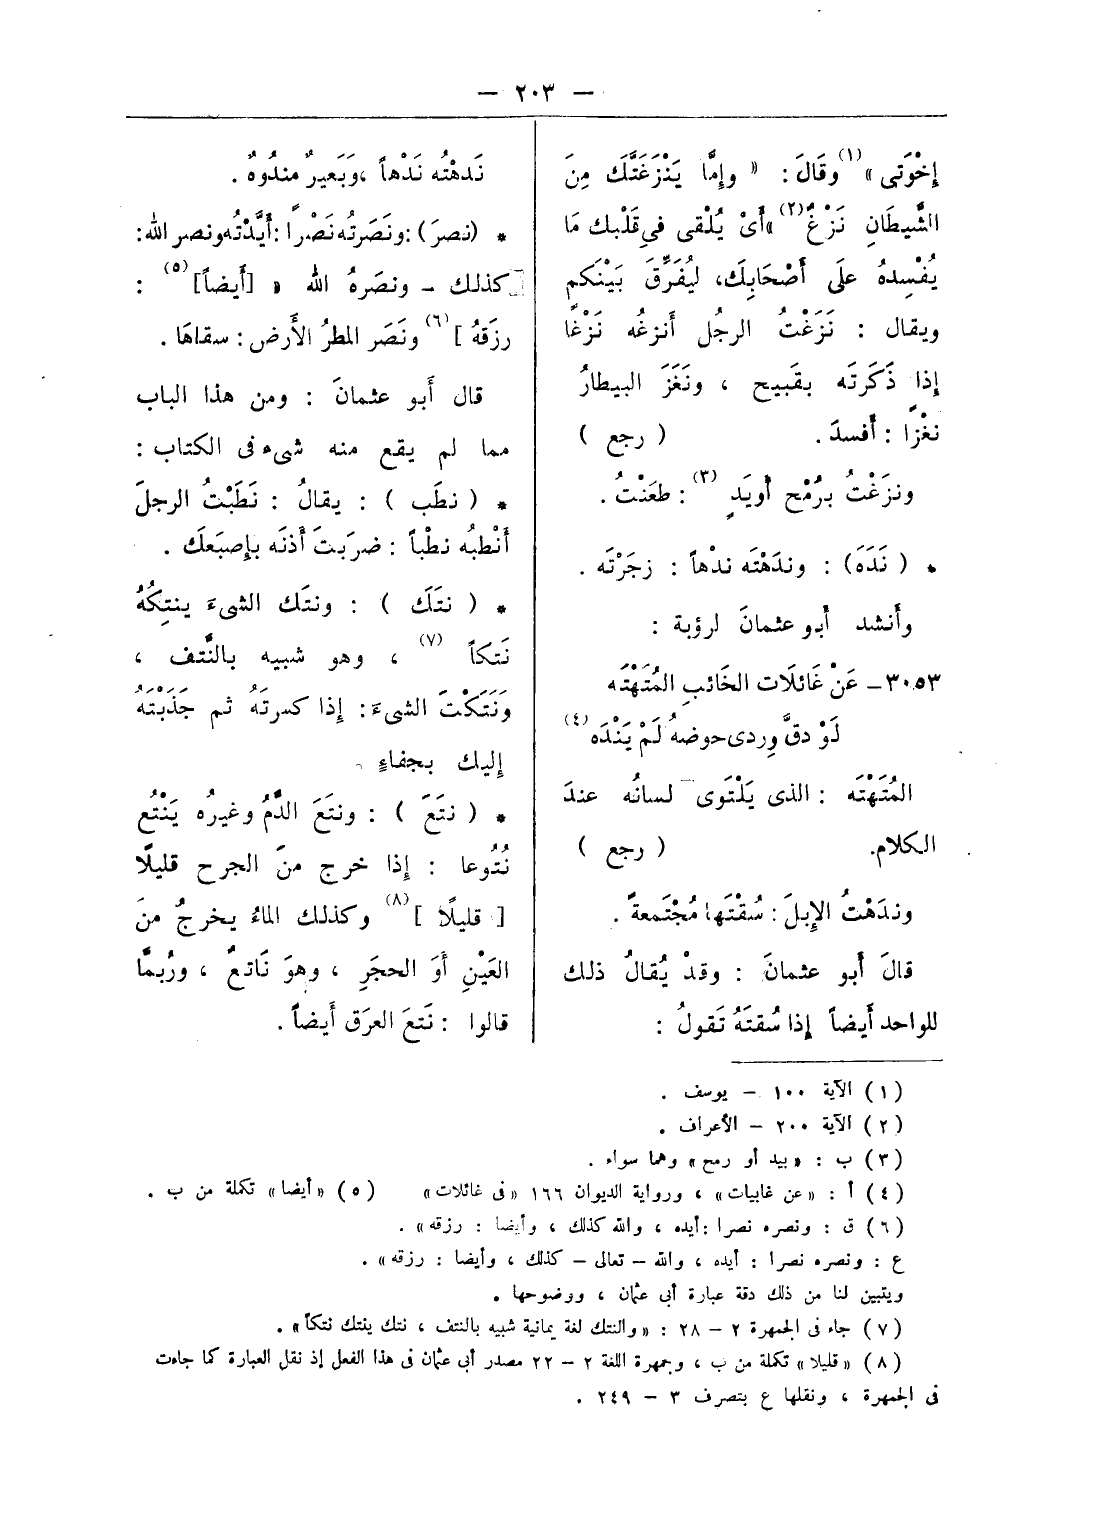 — ٢٠٣ —
إِخْوَتى »(١) وقَالَ : « وإمَّا يَنْزَغَنَّكَ مِنَ
الشَّيطَانِ نَزْغٌ(٢)» أَىْ يُلْقى فى قَلْبك مَا
يُفْسِدهُ علَى أَصْحَابِكَ، ليُفَرِّقَ بَيْنَكم
ويقال : نَزَغْتُ الرجُل أَنزغُه نَزْغًا
إذا ذَكَرتَه بقَبيح ، ونَغَزَ البيطارُ
نغْزًا : أَفسدَ . ( رجع )
ونزَغْتُ برُمْحٍ أَويَدٍ (٣) : طعَنْتُ .
* ( نَدَهَ) : وندَهْتَه ندْهاً : زجَرْتَه .
وأَنشد أَبو عثمانَ لرؤبة :
٣٠٥٣ – عَنْ غَائلَات الخَائب المُتَهْتَه
لَوْ دقَّ وِردى حوضهُ لَمْ يَنْدَه (٤)
المُتَهْتَه : الذى يَلْتَوى لسانُه عندَ
الكلام. ( رجع )
وندَهْتُ الإِبلَ : سُقْتَها مُجْتَمعةً .
قالَ أَبو عثمانَ : وقدْ يُقالُ ذلك
للواحد أَيضاً إذا سُقتَهُ تَقولُ :
نَدهْتُه نَدْهاً ،وَبَعيرٌ مندُوهٌ .
* (نصرَ) :ونَصَرتُه نَصْرًا :أَيَّدْتُه ونصر الله:
[كذلك – ونصَرهُ الله « [أَيضاً] (٥) :
رزَقهُ ] (٦) ونَصَر المطرُ الأَرضَ : سقاهَا .
قال أَبو عثمانَ : ومن هذا الباب
مما لم يقع منه شىء فى الكتاب :
* ( نطَب ) : يقالُ : نَطَبْتُ الرجلَ
أَنْطبُه نطْباً : ضرَبتَ أُذنَه بإصبَعكَ .
* ( نتَكَ ) : ونتَك الشىءَ ينتِكُهُ
نَتكاً (٧) ، وهو شبيه بالنَّتف ،
وَنَتَكْتَ الشىءَ : إذا كسرتَهُ ثم جَذَبْتَهُ
إليك بجفاءٍ .
* ( نتَعَ ) : ونتَعَ الدَّمُ وغيرُه يَنْتُع
نُتُوعا : إذا خرج منَ الجرح قليلًا
[ قليلًا ] (٨) وكذلك الماءُ يخرجُ منَ
العَيْنِ أَوَ الحجَرِ ، وهوَ نَاتعٌ ، ورُبمَّا
قالوا : نَتعَ العرَق أَيضاً .
(١) الآية ١٠٠ – يوسف .
(٢) الآية ٢٠٠ – الأعراف .
(٣) ب : «بيد أو رمح» وهما سواء .
(٤) أ : «عن غابيات» ، ورواية الديوان ١٦٦ «فى غائلات» (٥) «أيضا» تكملة من ب .
(٦) ق : ونصره نصرا :أيده ، والله كذلك ، وأيضا : رزقه» .
ع : ونصره نصرا : أيده ، والله – تعالى – كذلك ، وأيضا : رزقه» .
ويتبين لنا من ذلك دقة عبارة أبى عثمان ، ووضوحها .
(٧) جاء فى الجمهرة ٢ – ٢٨ : «والنتك لغة يمانية شبيه بالنتف ، نتك ينتك نتكاً» .
(٨) «قليلا» تكملة من ب ، وجمهرة اللغة ٢ – ٢٢ مصدر أبى عثمان فى هذا الفعل إذ نقل العبارة كما جاءت
فى الجمهرة ، ونقلها ع بتصرف ٣ – ٢٤٩ .